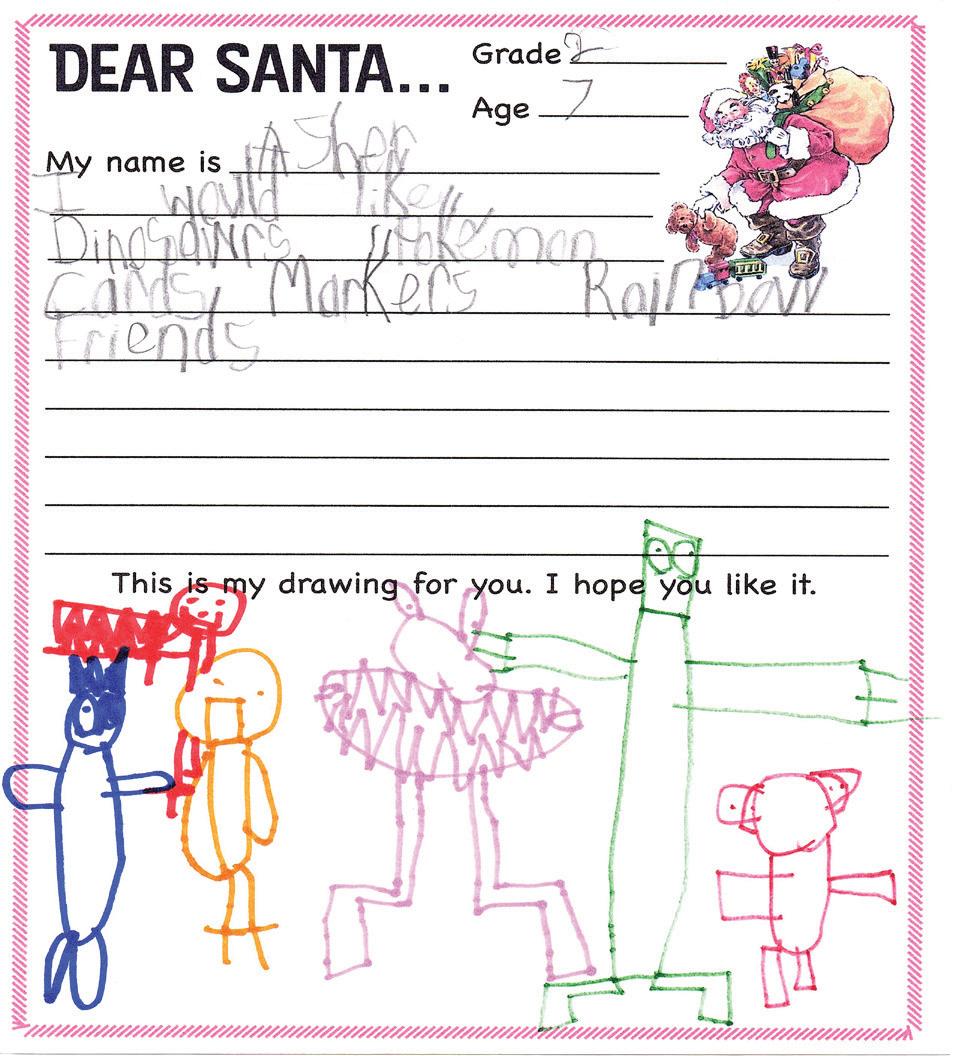 DEAR SANTA...
Grade 2
Age 7
My name is Asher
I would like
Dinosawrs, Pokémon
Cards, Markers Rainbow
Friends
This is my drawing for you. I hope you like it.